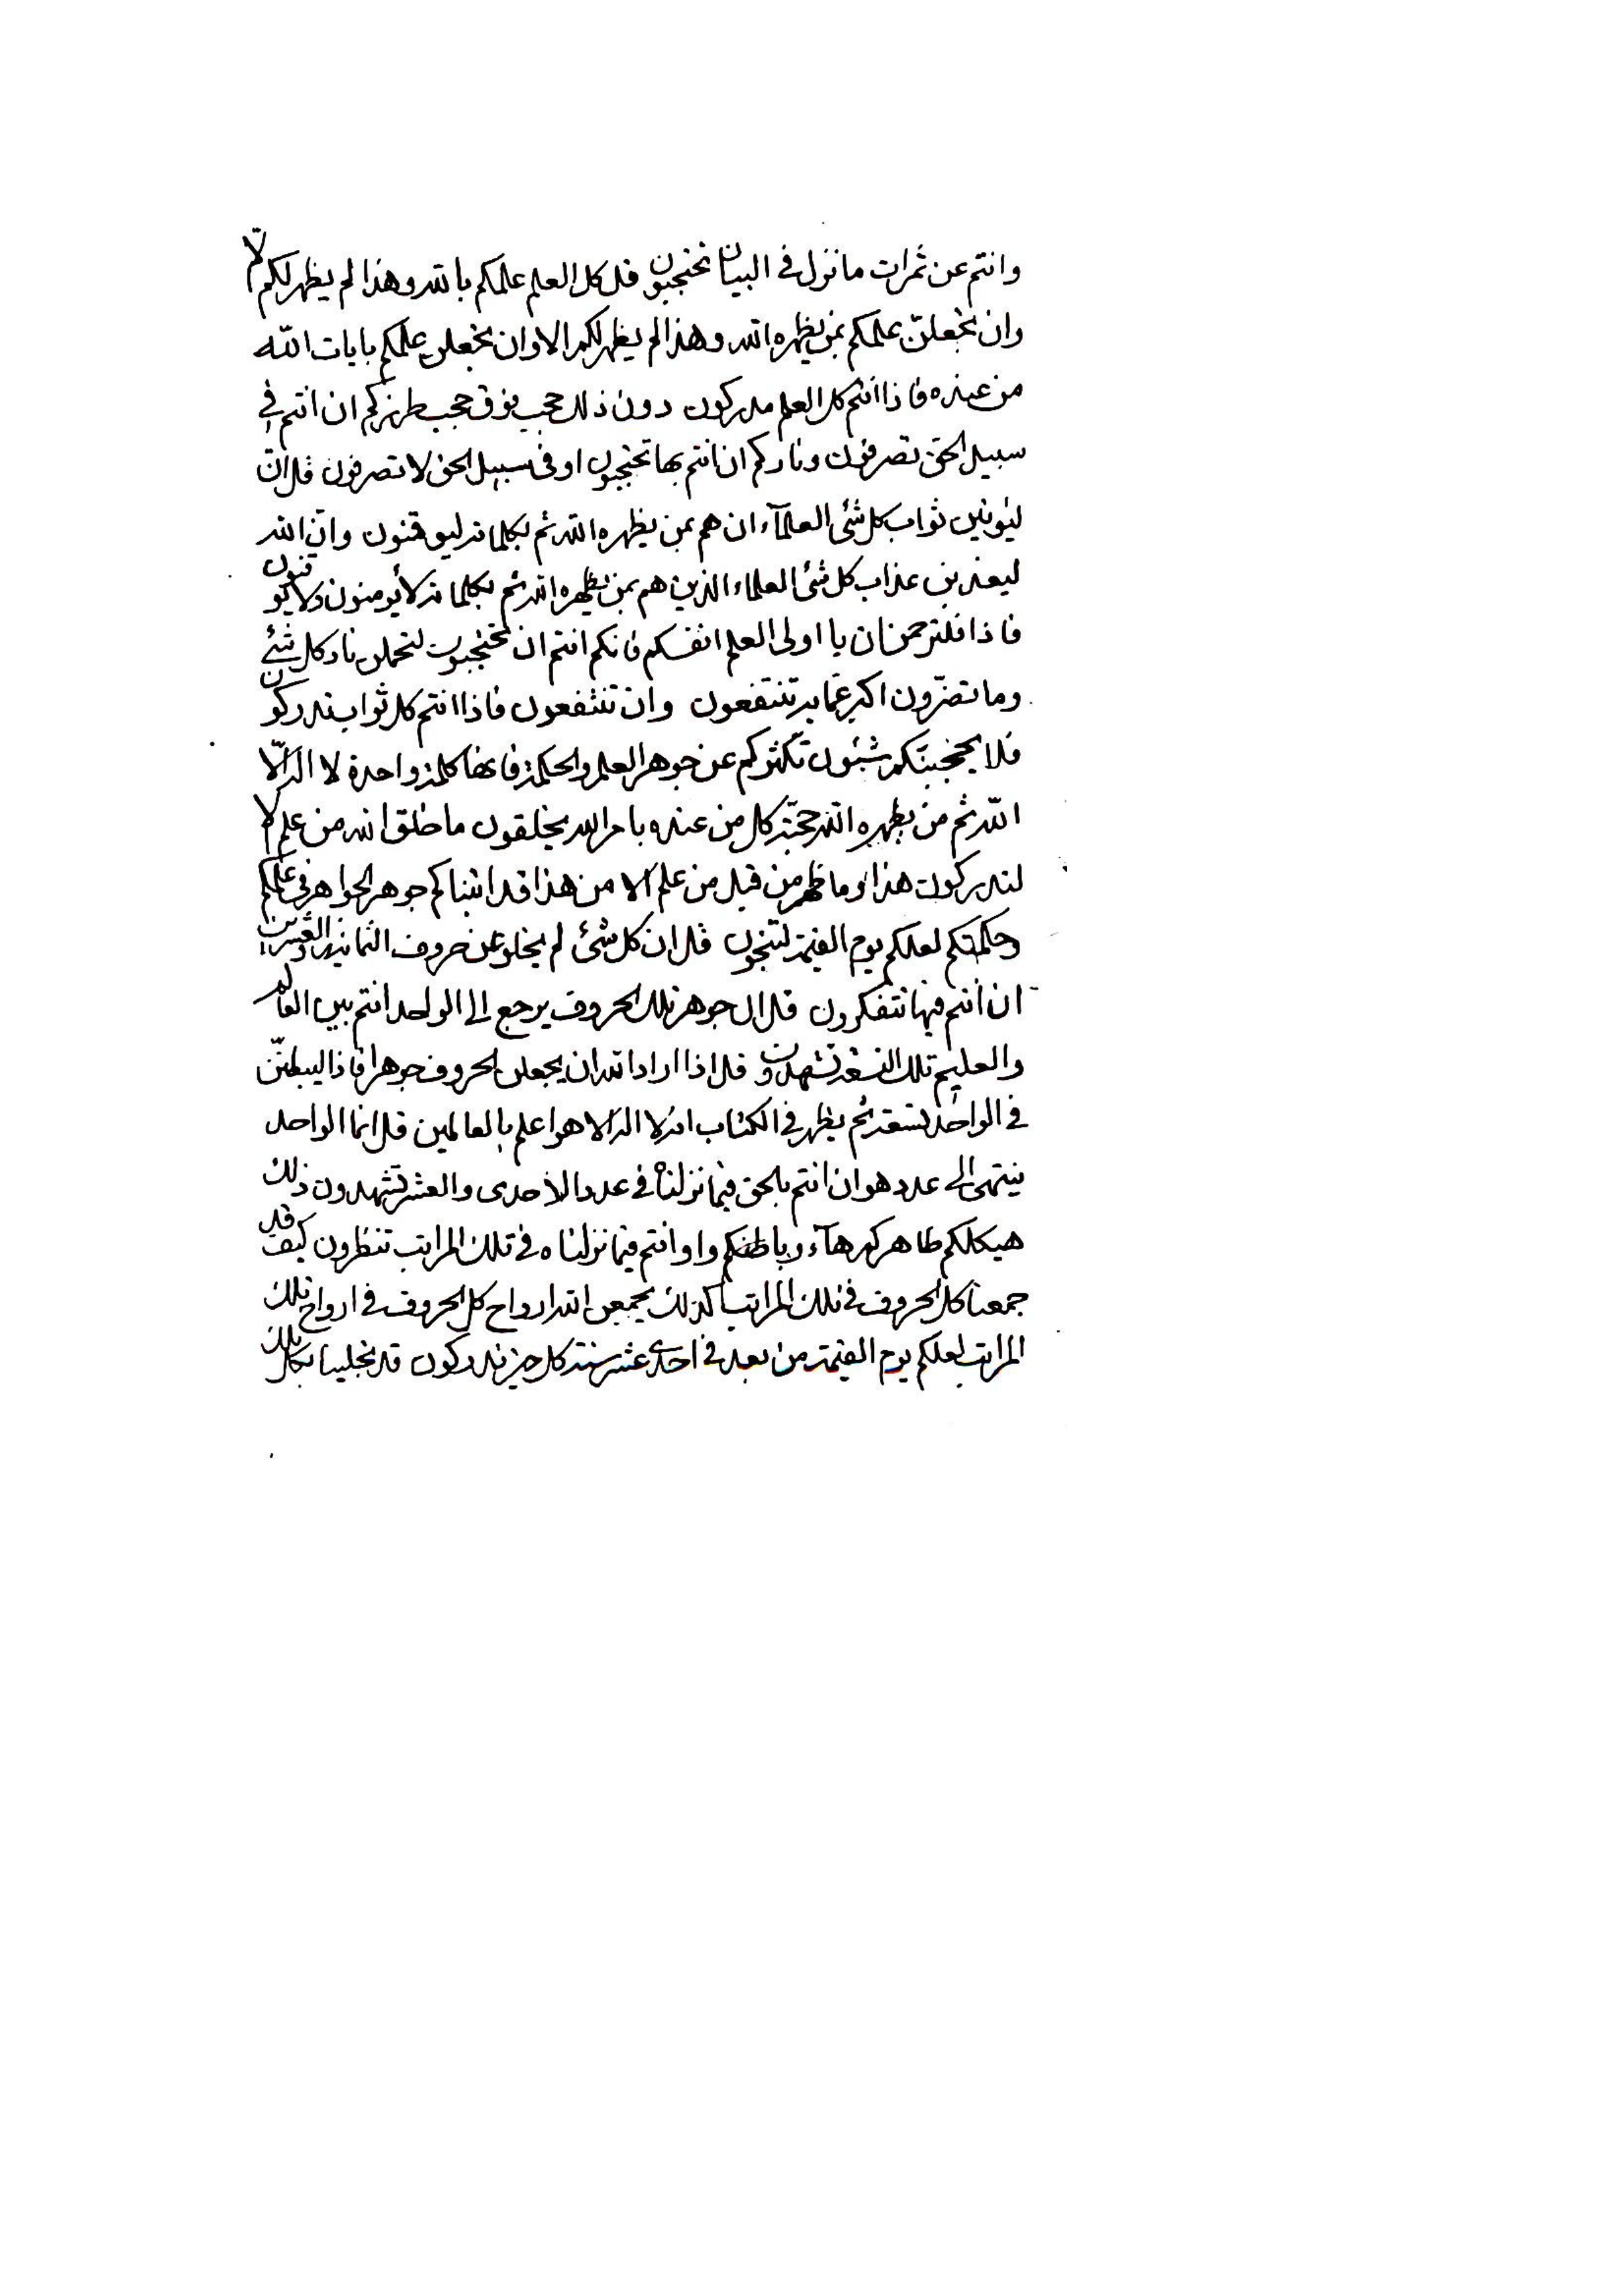 وانتم عن ثمرات ما نزل فى البيان تحتجبون قل كل العلم علمكم بالله وهذا لم يظهر لكم الا
وان تجعلن علمكم بمن يظهره الله وهذا لم يظهر لكم الا وان تجعلن علمكم بايات الله
من عنده فاذا انتم كل العلم مدركون دون ذلك حجب فوق حجب طرزكم ان انتم فى
سبيل الحق تصرفون وناركم ان انتم بها تحتجبون او فى سبيل الحق لا تصرفون قل ان
ليؤتين ثواب كل شئ العلمآء ان هم بمن يظهره الله ثم بكلماته ليوقنون وان الله
ليعذبن عذاب كل شئ العلماء الذين هم بمن يظهره الله ثم بكلماته لا يؤمنون ولا يوقنون
فاذا فلترحمن ان يا اولى العلم انفسكم فانكم انتم ان تحتجبون لتحملن نار كل شئ
وما تضرون اكبر عما به تنتفعون وان تنتفعون فاذا انتم كل ثواب تدركون
فلا يحجبنكم شئون تكثركم عن جوهر العلم والحكمة فانها كلمة واحدة لا اله الا
الله ثم من يظهره الله حجته كل من عنده بامر الله يخلقون ما خلق الله من علم الا
لتدركون هذا وما ظهر من قبل من علم الا من هذا قد اتيناكم جوهر الجواهر فى علمكم
وحكمتكم لعلكم يوم القيمة لتنجون قل ان كل شئ لم يخلو عن حروف الثمانية والعشرين
ان انتم فيها تتفكرون قل ان جوهر تلك الحروف يرجع الى الواحد انتم بين العالم
والعليم تلك التسعة تشهدون قل اذا اراد الله ان يجعلن الحروف جوهرا فاذا ليبطنن
فى الواحد تسعة ثم يظهر فى الكتاب انه لا اله الا هو اعلم بالعالمين قل انما الواحد
ينتهى الى عدد هو ان انتم بالحق فيما نزلناه فى عدد الاحدى والعشر تشهدون ذلك
هيكلكم ظاهركم هآء وباطنكم واو انتم فيما نزلناه فى تلك المراتب تنظرون كيف قد
جمعنا كل الحروف فى تلك المراتب كذلك يجمعن الله ارواح كل الحروف فى ارواح تلك
المراتب لعلكم يوم القيمة من بعد فى احدى عشر سنة كل خير تدركون قد تجلينا بكل تلك